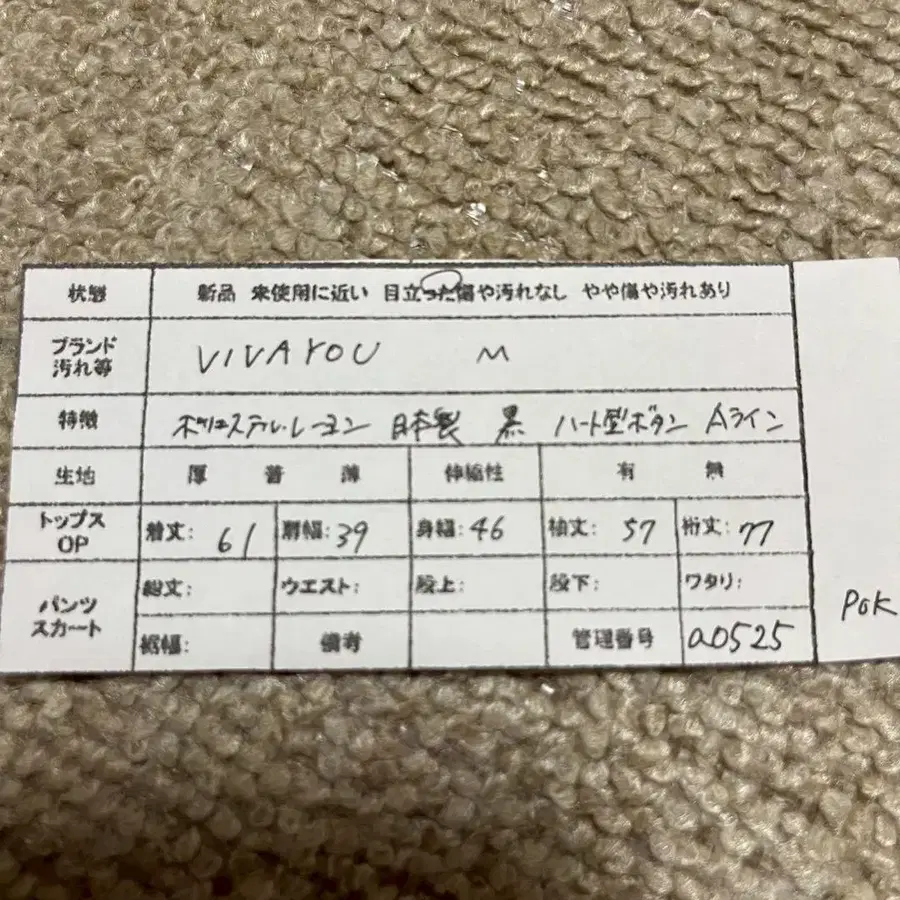 状態 新品 未使用に近い 目立った傷や汚れなし やや傷や汚れあり
ブランド 汚れ等 VIVAYOU M
特徴 ポリエステル.レーヨン 日本製 黒 ハート型ボタン Aライン
生地 厚 普 薄 伸縮性 有 無
トップス OP 着丈: 61 肩幅: 39 身幅: 46 袖丈: 57 裄丈: 77
パンツ スカート 総丈: ウエスト: 股上: 股下: ワタリ:
裾幅: 備考 管理番号 a0525
POK